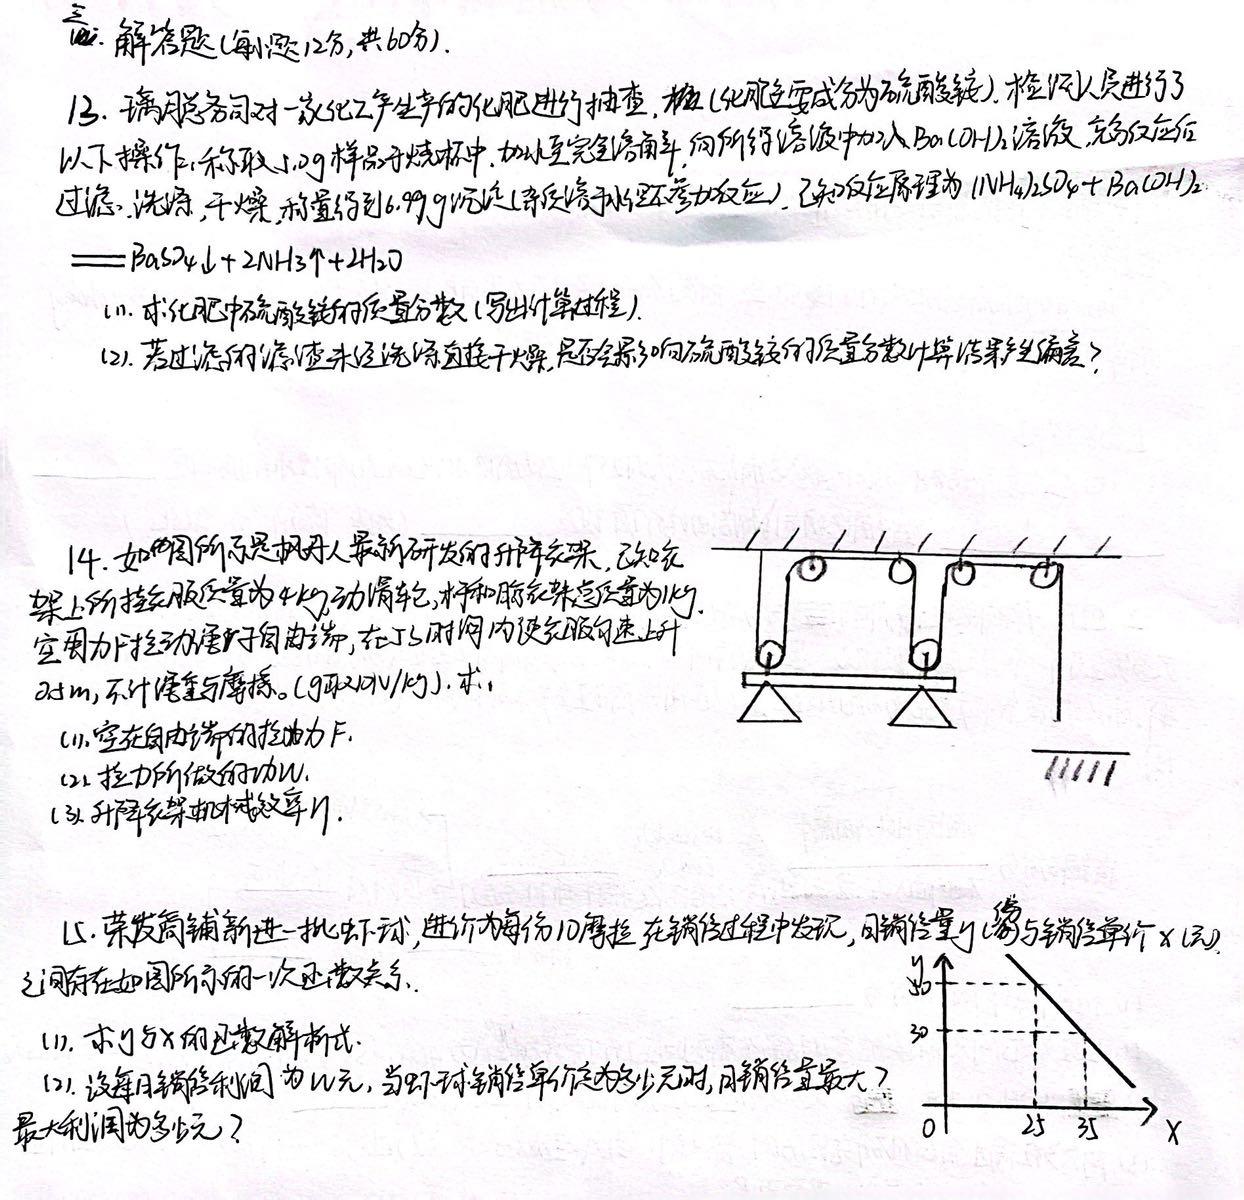 三. 解答题(每小题12分,共60分).
13. 璃月总务司对一家化工厂生产的化肥进行抽查, (化肥主要成分为硫酸铵). 检测人员进行了
以下操作:称取5.0g样品于烧杯中,加水至完全溶解,向所得溶液中加入Ba(OH)₂溶液,充分反应后
过滤、洗涤,干燥,称量得到6.99g沉淀(杂质溶于水但不参加反应). 已知反应原理为(NH4)2SO4+Ba(OH)2
══BaSO4↓+2NH3↑+2H2O
(1). 求化肥中硫酸铵的质量分数(写出计算过程).
(2). 若过滤的滤渣未经洗涤直接干燥,是否会影响硫酸铵的质量分数计算结果产生偏差?
14. 如图所示是枫丹人最新研发的升降衣架, 已知衣
架上所挂衣服质量为4kg,动滑轮,杆和晾衣架总质量为1kg.
空用力F拉动绳子自由端,在5s时间内使衣服匀速上升
0.5m,不计绳重与摩擦。(g取10N/kg).求:
(1).空在自由端的拉力F.
(2).拉力所做的功W.
(3).升降衣架机械效率η.
15. 荣发商铺新进一批虾球,进价为每份10摩拉,在销售过程中发现,日销售量y(份)与销售单价x(元)
之间存在如图所示的一次函数关系.
(1). 求y与x的函数解析式.
(2). 设每日销售利润为W元, 当虾球销售单价定为多少元时,日销售量最大?
最大利润为多少元?
y
50
30
0
25
35
x